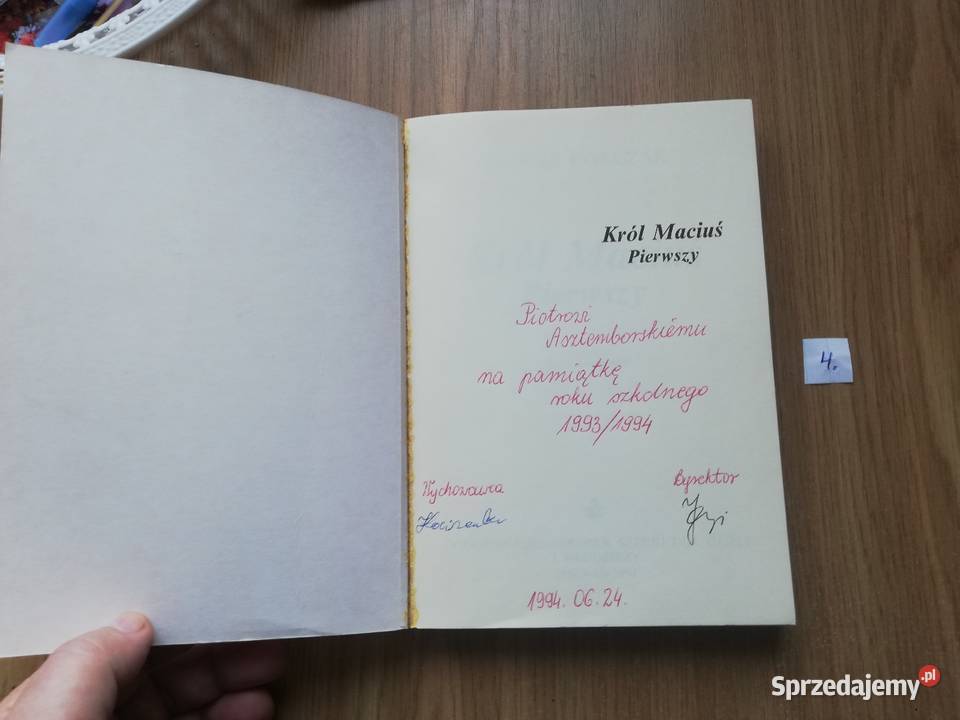 Król Maciuś
Pierwszy
Piotrowi
Asztemborskiemu
na pamiątkę
roku szkolnego
1993/1994
Wychowawca
Dyrektor
1994. 06. 24.
4.
Sprzedajemy.pl